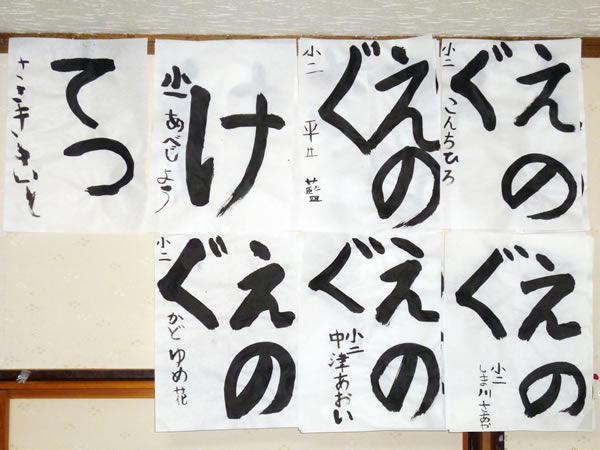 えの
ぐ
小二 こんちひろ
えの
ぐ
小二 平井 藍
け
小一 あべじょう
てつ
えの
ぐ
小二
しま川さあや
えの
ぐ
小二
中津あおい
えの
ぐ
小二 かどゆめ花